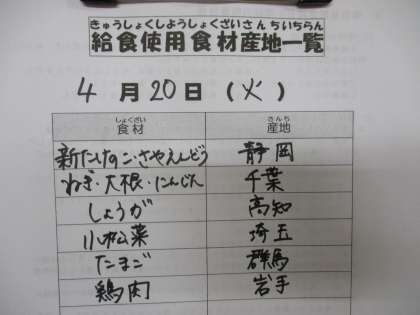 きゅうしょくしようしょくざいさんちいちらん
給食使用食材産地一覧
4月20日(火)
しょくざい さんち
食材 産地
新たけのこ・さやえんどう 静岡
ねぎ・大根・にんじん 千葉
しょうが 高知
小松菜 埼玉
たまご 群馬
鶏肉 岩手